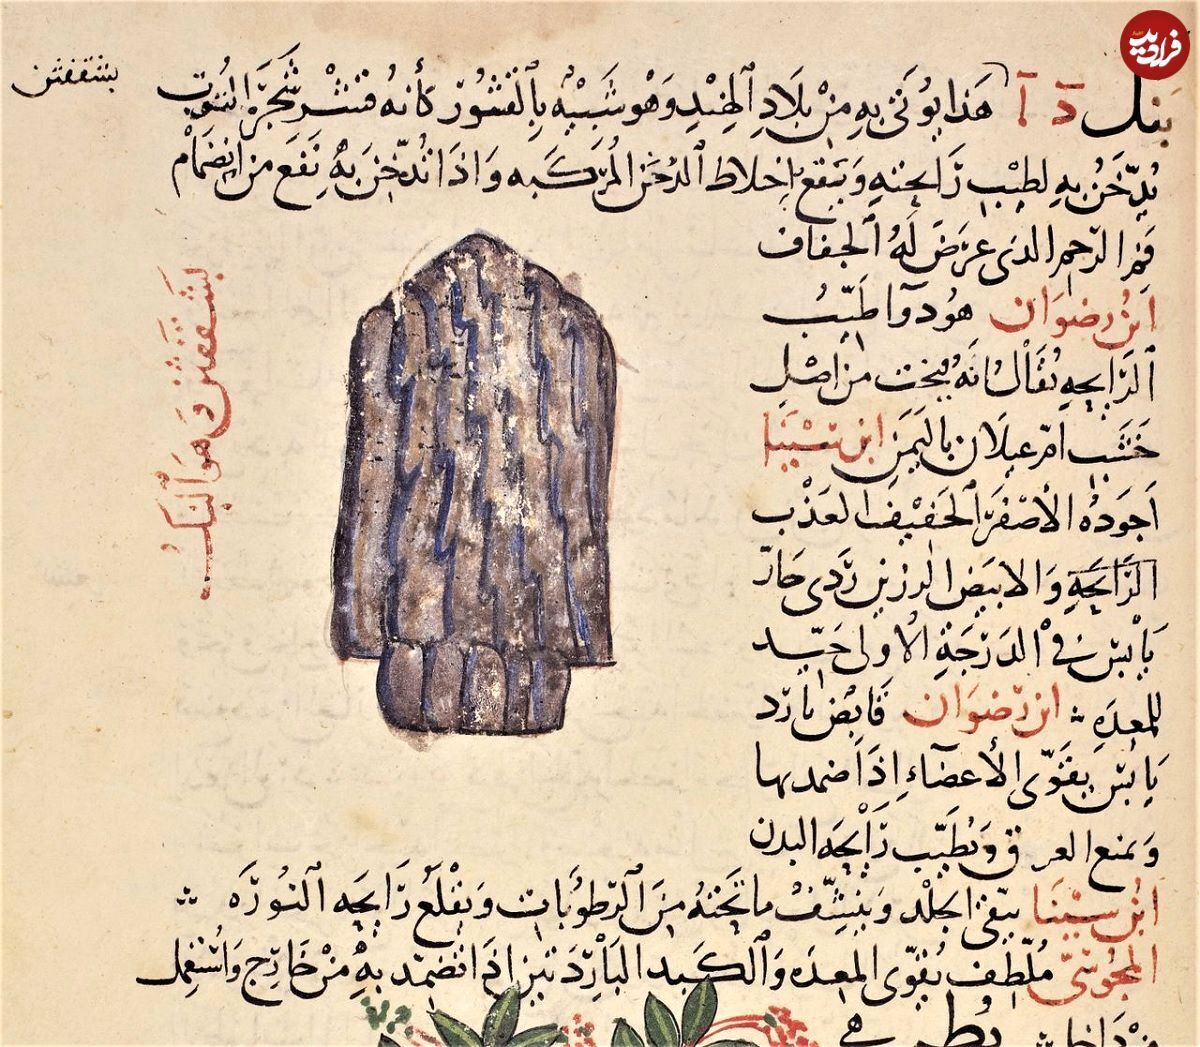 فرادید
بنك د آ هَذا يُوتَى بِهِ مِنْ بِلَادِ الهِنْدِ وَهُوَ شَبِيْهُ بِالقُشُوْر كأنه قشر شَجَرَةِ التُوت
يُدَّخَنُ بِهِ لطِيْبِ رَايحتِهِ وَيَقع باخلاط الدُخَن المُرَكَبه وَاذَا تُدُخِّنَ بِهِ نَفَع من انضمام
فَمِ الرّحم الذى عَرَضَ لَهُ الجفاف
ابنُ رضوَان هودوآ طَيّبُ
الرَّايحِه يُقَالُ انهُ يُنحت من اصْلِ
خَشَب ام غيلَان باليَمَن ابن سِيْنَا
اَجوَدُه الأصْفَر الخَفِيف العَذْب
الرَّايحَةِ وَالابيَض الرزين رَدى حَارّ
يَابِسٌ فى الدَرَجَةِ الاولى جَيّد
للمعِدَه ابن رضوَان قَابِض بَارِد
يَابِسٌ يقَوّى الأعضَاءِ اِذَا ضمد بها
وَيمنع العرق وَيُطَيّب رَايحَة البدن
ابنُ سِيْنَا ينقى الجلد وَيُنَشِّفُ ما تحتهُ مِنَ الرطُوبَات وَيَقْلَعُ رَايحَه النُورَه
المجُوسىّ مُلَطِّف يُقَوّى المعِدَه وَالكَبد البَارِدَتين اذَا تضمد بِهِ مِنْ خَارِج وَاسْتعمِل
مِنْ دَاخل
بشقفثن
بَشَقَفَثن وَهوَ البُنك